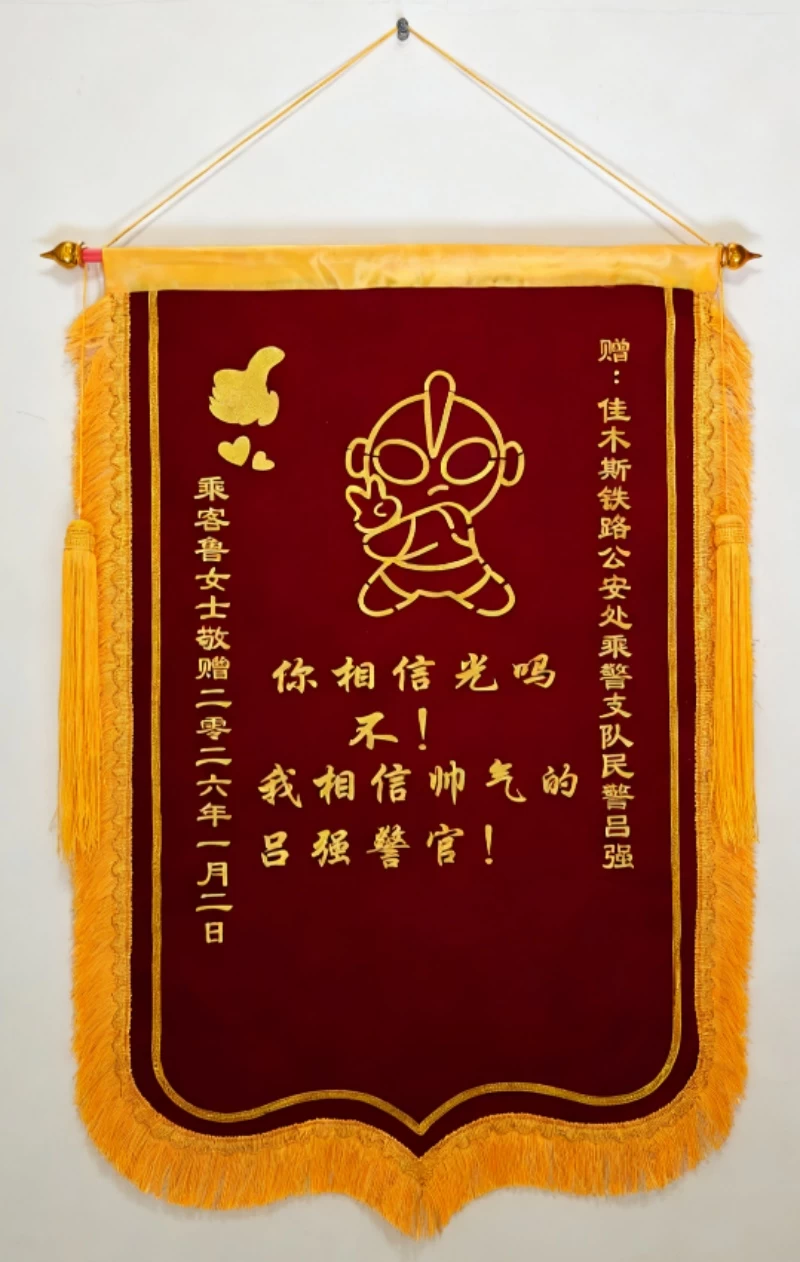 赠：佳木斯铁路公安处乘警支队民警吕强
你相信光吗
不！
我相信帅气的
吕强警官！
乘客鲁女士敬赠二零二六年一月二日